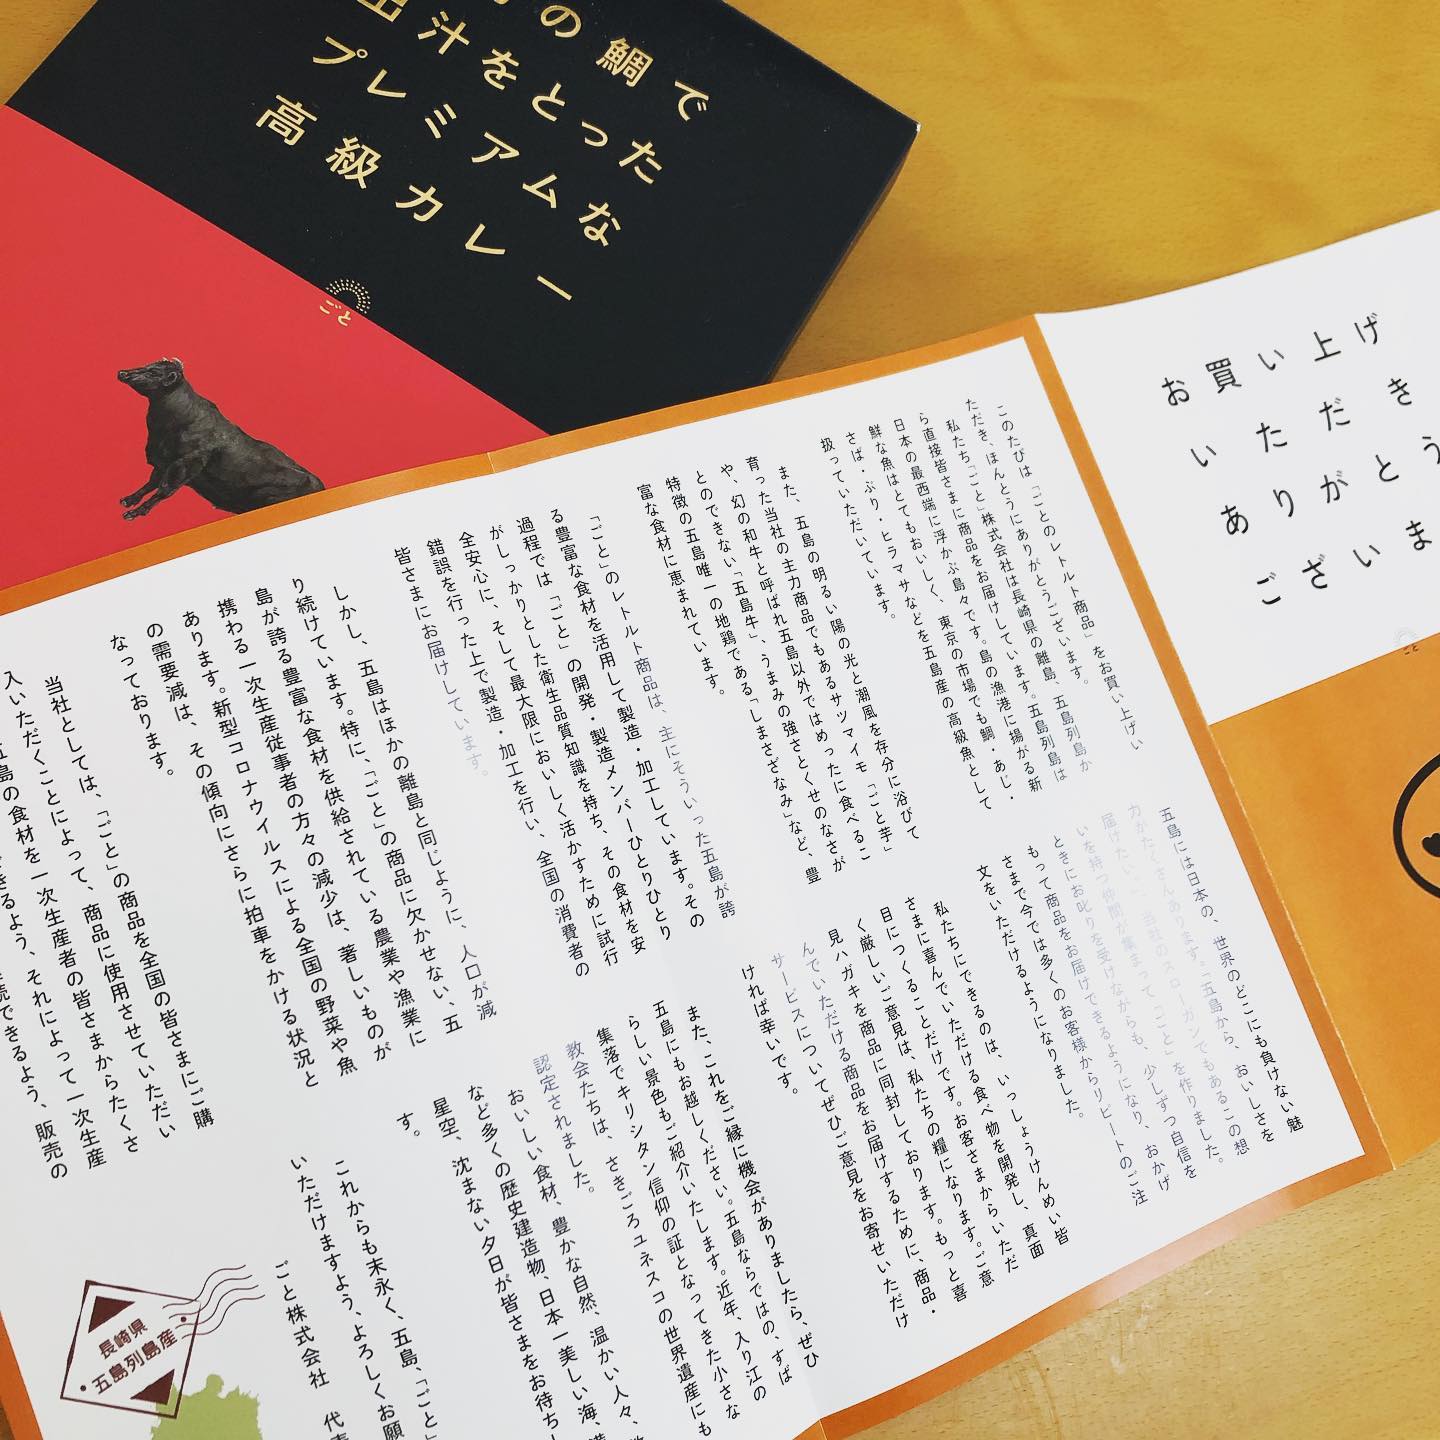 の鯛で
出汁をとった
プレミアムな
高級カレー
ごと
お買い上げ
いただき
ありがとう
ございま
ごと
このたびは「ごとのレトルト商品」をお買い上げい
ただき、ほんとうにありがとうございます。
私たち「ごと」株式会社は長崎県の離島、五島列島か
ら直接皆さまに商品をお届けしています。五島列島は
日本の最西端に浮かぶ島々です。島の漁港に揚がる新
鮮な魚はとてもおいしく、東京の市場でも鯛・あじ・
さば・ぶり・ヒラマサなどを五島産の高級魚として
扱っていただいています。
また、五島の明るい陽の光と潮風を存分に浴びて
育った当社の主力商品でもあるサツマイモ「ごと芋」
や、幻の和牛と呼ばれ五島以外ではめったに食べるこ
とのできない「五島牛」、うまみの強さとくせのなさが
特徴の五島唯一の地鶏である「しまさざなみ」など、豊
富な食材に恵まれています。
「ごと」のレトルト商品は、主にそういった五島が誇
る豊富な食材を活用して製造・加工しています。その
過程では「ごと」の開発・製造メンバーひとりひとり
がしっかりとした衛生品質知識を持ち、その食材を安
全安心に、そして最大限においしく活かすために試行
錯誤を行った上で製造・加工を行い、全国の消費者の
皆さまにお届けしています。
しかし、五島はほかの離島と同じように、人口が減
り続けています。特に、「ごと」の商品に欠かせない、五
島が誇る豊富な食材を供給されている農業や漁業に
携わる一次生産従事者の方々の減少は、著しいものが
あります。新型コロナウイルスによる全国の野菜や魚
の需要減は、その傾向にさらに拍車をかける状況と
なっております。
当社としては、「ごと」の商品を全国の皆さまにご購
入いただくことによって、商品に使用させていただい
五島の食材を一次生産者の皆さまからたくさ
できるよう、それによって一次生産
続できるよう、販売の
五島には日本の、世界のどこにも負けない魅
力がたくさんあります。「五島から、おいしさを
届けたい。」、当社のスローガンでもあるこの想
いを持つ仲間が集まって「ごと」を作りました。
ときにお叱りを受けながらも、少しずつ自信を
もって商品をお届けできるようになり、おかげ
さまで今では多くのお客様からリピートのご注
文をいただけるようになりました。
私たちにできるのは、いっしょうけんめい皆
さまに喜んでいただける食べ物を開発し、真面
目につくることだけです。お客さまからいただ
く厳しいご意見は、私たちの糧になります。ご意
見ハガキを商品に同封しております。もっと喜
んでいただける商品をお届けするために、商品・
サービスについてぜひご意見をお寄せいただけ
ければ幸いです。
また、これをご縁に機会がありましたら、ぜひ
五島にもお越しください。五島ならではの、すば
らしい景色もご紹介いたします。近年、入り江の
集落でキリシタン信仰の証となってきた小さな
教会たちは、さきごろユネスコの世界遺産にも
認定されました。
おいしい食材、豊かな自然、温かい人々、
など多くの歴史建造物、日本一美しい海、
星空、沈まない夕日が皆さまをお待ち
す。
これからも末永く、五島、「ごと」
いただけますよう、よろしくお願
ごと株式会社 代表
長崎県
五島列島産